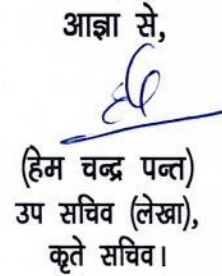 आज्ञा से,
(हेम चन्द्र पन्त)
उप सचिव (लेखा),
कृते सचिव।